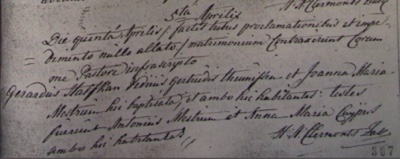 H H Clermonts Past
5ta Aprilis
Die quinta Aprilis factis tribus proclamationibus et impe
= dimento nullo allato, matrimonium contraxerunt Coram
me Pastore infrascripto
Gerardus Haffkan viduus gertrudis theunissen et Joanna Maria
Mestrum hic baptisata, et ambo hic habitantes: testes
fuerunt Antonius Mestrum et Anna Maria Cuypers
ambo hic habitantes
H H Clermonts Past
367